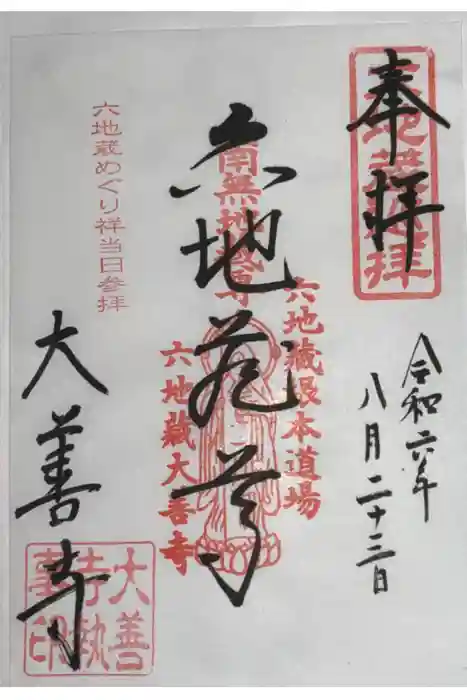 奉拝
令和六年
八月二十三日
六地蔵尊
南無地蔵尊
六地藏根本道場
六地藏大善寺
六地蔵めぐり祥当日参拝
大善寺
大善
寺執
事印